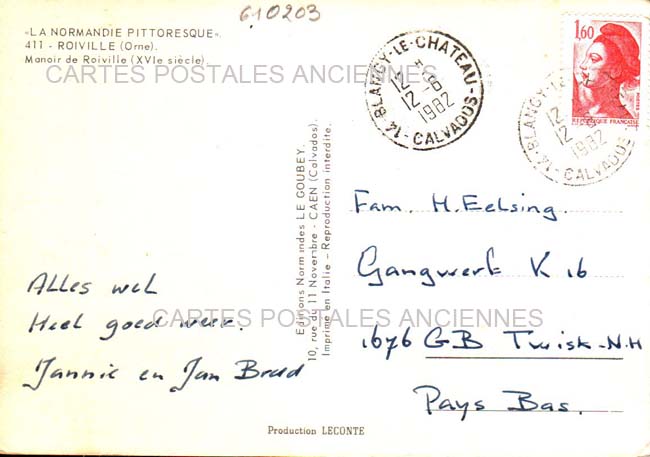 610203
«LA NORMANDIE PITTORESQUE».
411 - ROIVILLE (Orne).
Manoir de Roiville (XVIe siècle).
CARTES POSTALES ANCIENNES
14 - BLANGY-LE-CHATEAU - CALVADOS
12 H
12 - 6
1982
1,60
POSTES
REPUBLIQUE FRANÇAISE
14 - BLANGY-LE- CALVADOS
12
12
1982
Editions Normandes LE GOUBEY.
10, rue du 11 Novembre - CAEN (Calvados).
Imprimé en Italie - Reproduction interdite.
Fam. H. Eelsing.
Gangwerk K 16
1676 GB Twisk-N.H
Pays Bas.
Alles wel
Heel goed weer.
Jannie en Jan Brad
CARTES POSTALES ANCIENNES
Production LECONTE